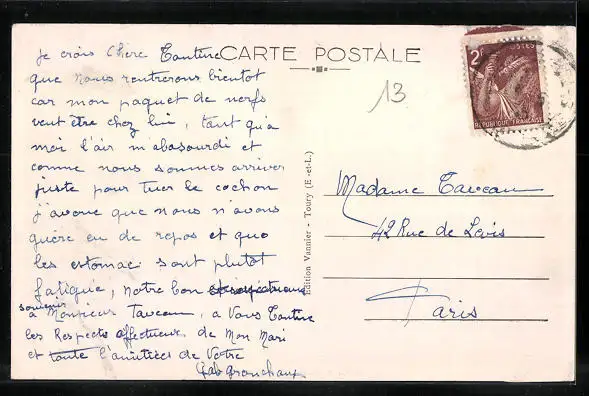 CARTE POSTALE
Je crois Chère Tantine
que nous rentrerons bientot
car mon paquet de nerfs
veut être chez lui, tant qu'a
moi l'air m'abasourdi et
comme nous sommes arriver
juste pour tuer le cochon
j'avoue que nous n'avons
guère eu de repos et que
les estomac sont plutot
fatiguée, notre bon
souvenir
a Monsieur Taveau, a Vous Tantine
les Respects affectueux de Mon Mari
et toute l'amitiées de Votre
Gab
13
2F
POSTES
REPUBLIQUE FRANÇAISE
Edition Vannier - Toury (E.-et-L.)
Madame Taveau
42 Rue de Lévis
Paris